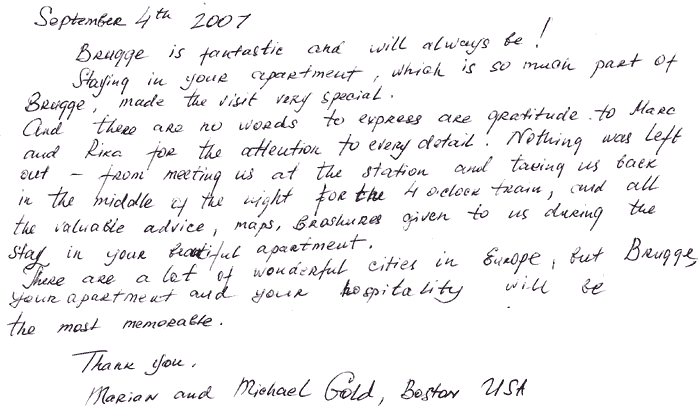 September 4th 2007
Brugge is fantastic and will always be!
Staying in your apartment, which is so much part of
Brugge, made the visit very special.
And there are no words to express are gratitude to Marc
and Rika for the attention to every detail! Nothing was left
out – from meeting us at the station and taking us back
in the middle of the night for the 4 oclock train, and all
the valuable advice, maps, Brashures given to us during the
stay in your beautiful apartment.
There are a lot of wonderful cities in Europe, but Brugge,
your apartment and your hospitality will be
the most memorable.
Thank you.
Marian and Michael Gold, Boston USA